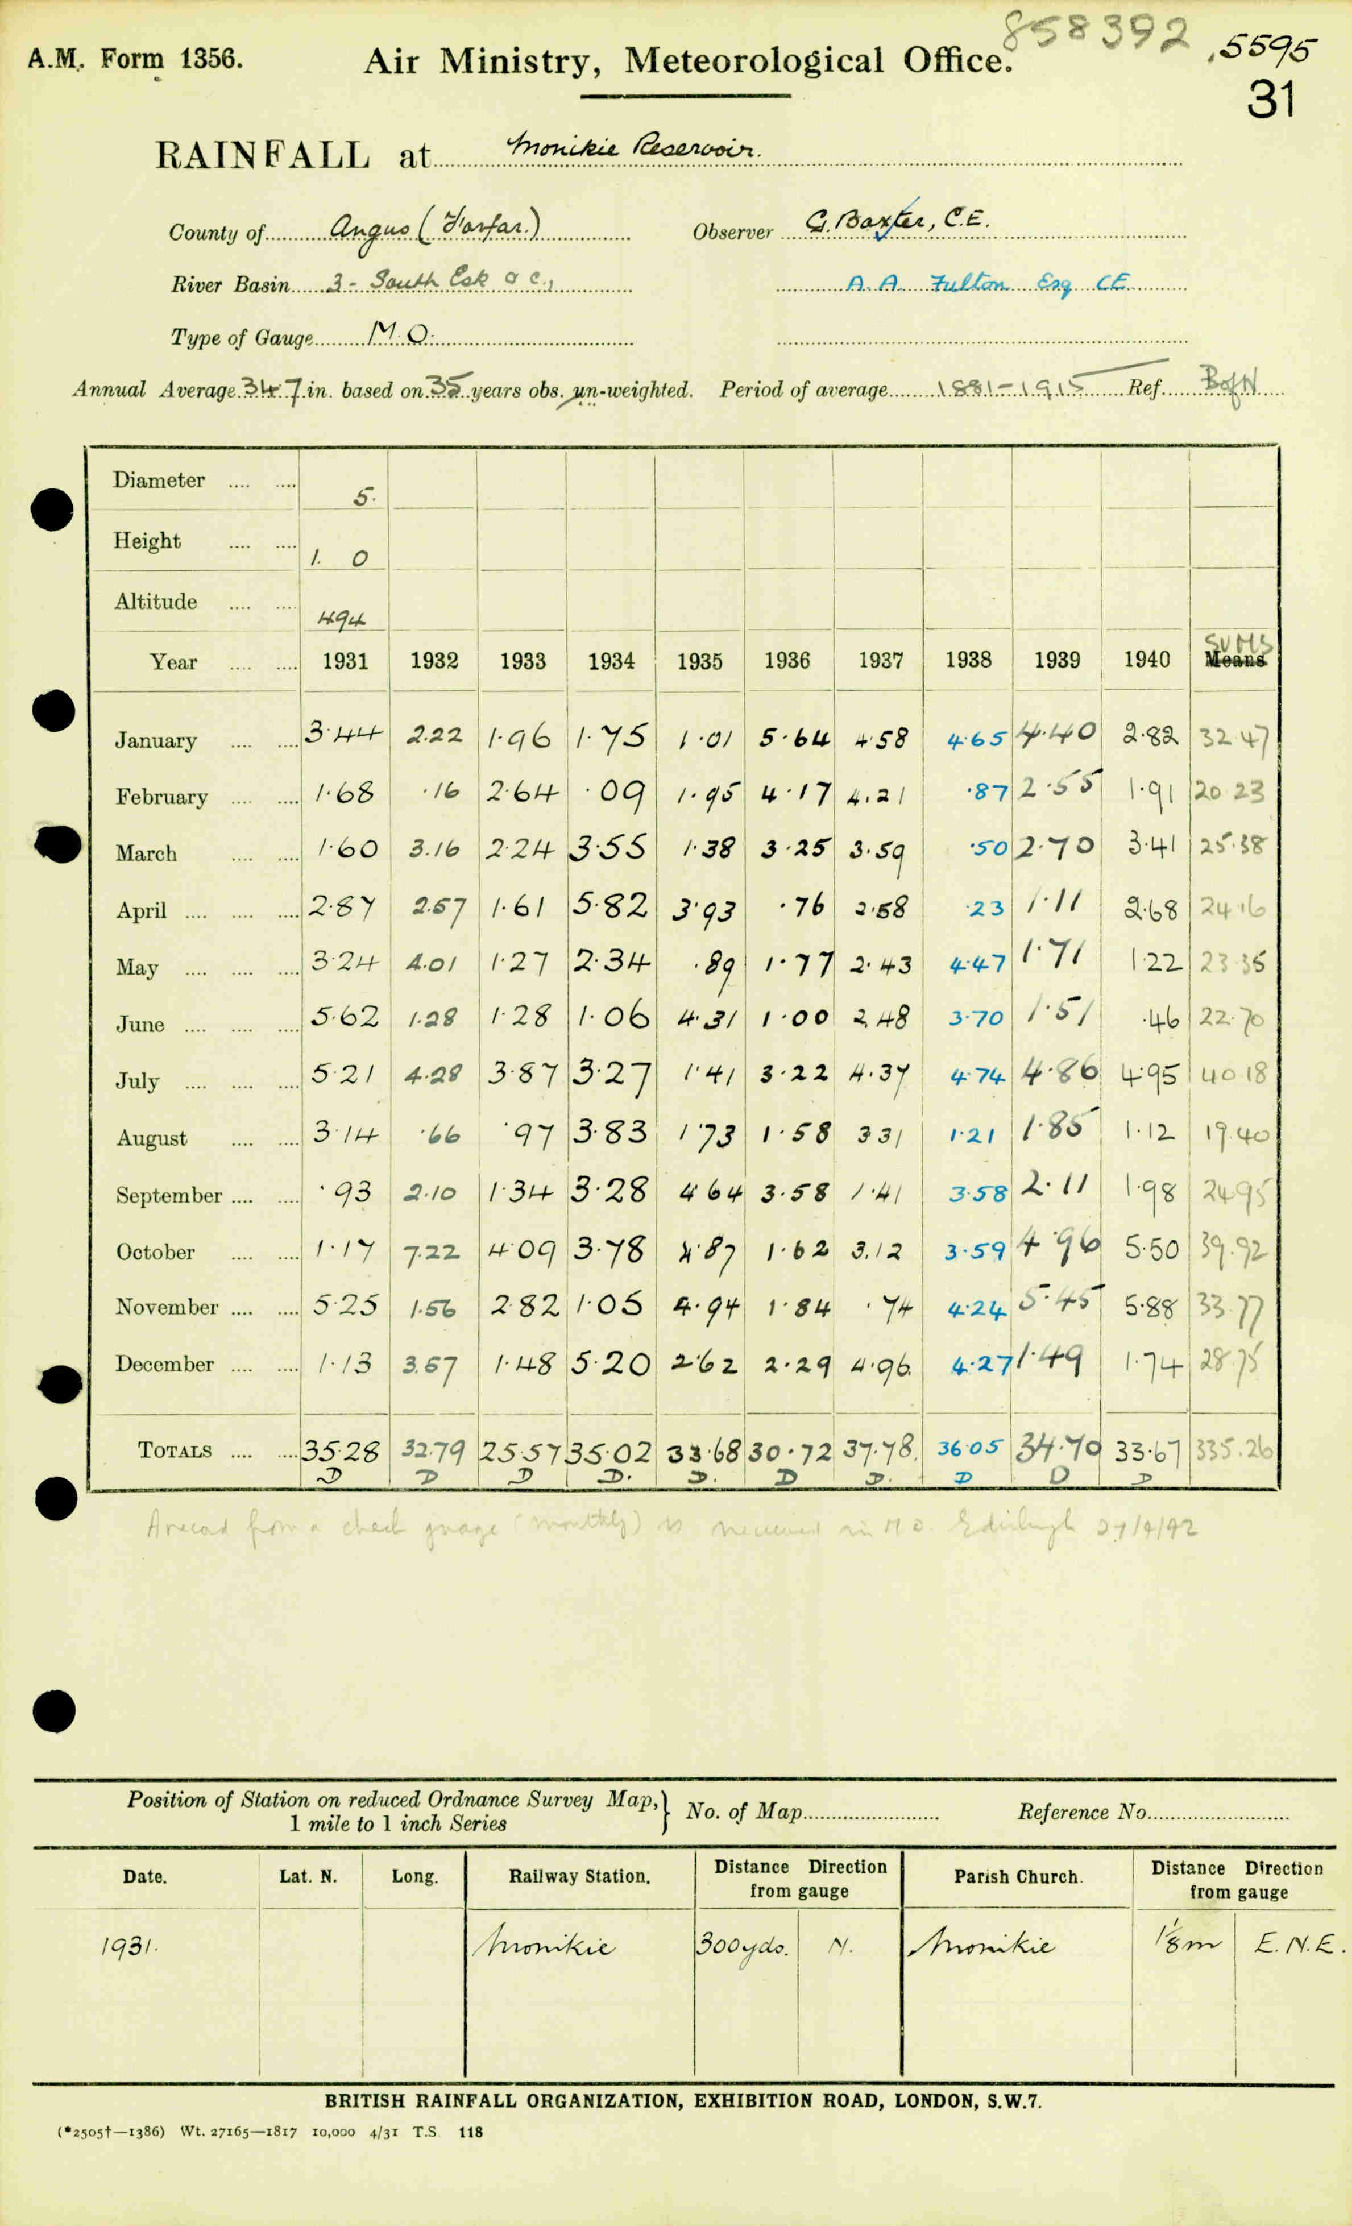 858392
A.M. Form 1356. Air Ministry, Meteorological Office. 5595
31
RAINFALL at Monikie Reservoir.
County of Angus (Forfar.) Observer G. Baxter, C.E.
River Basin 3 - South Esk & c., A. A. Fulton Esq CE
Type of Gauge M.O.
Annual Average 34.7 in. based on 35 years obs. un-weighted. Period of average 1881-1915 Ref. B of N
Diameter 5.
Height 1. 0
Altitude 494
SUMS
Year 1931 1932 1933 1934 1935 1936 1937 1938 1939 1940 Means
January 3.44 2.22 1.96 1.75 1.01 5.64 4.58 4.65 4.40 2.82 32.47
February 1.68 .16 2.64 .09 1.95 4.17 4.21 .87 2.55 1.91 20.23
March 1.60 3.16 2.24 3.55 1.38 3.25 3.59 .50 2.70 3.41 25.38
April 2.87 2.57 1.61 5.82 3.93 .76 2.58 .23 1.11 2.68 24.16
May 3.24 4.01 1.27 2.34 .89 1.77 2.43 4.47 1.71 1.22 23.35
June 5.62 1.28 1.28 1.06 4.31 1.00 2.48 3.70 1.51 .46 22.70
July 5.21 4.28 3.87 3.27 1.41 3.22 4.37 4.74 4.86 4.95 40.18
August 3.14 .66 .97 3.83 1.73 1.58 3.31 1.21 1.85 1.12 19.40
September .93 2.10 1.34 3.28 4.64 3.58 1.41 3.58 2.11 1.98 24.95
October 1.17 7.22 4.09 3.78 4.87 1.62 3.12 3.59 4.96 5.50 39.92
November 5.25 1.56 2.82 1.05 4.94 1.84 .74 4.24 5.45 5.88 33.77
December 1.13 3.57 1.48 5.20 2.62 2.29 4.96 4.27 1.49 1.74 28.75
TOTALS 35.28 32.79 25.57 35.02 33.68 30.72 37.78 36.05 34.70 33.67 335.26
D D D D. D. D D. D D D
A record from a check guage (monthly) is received in M O. Edinburgh 27/4/42
Position of Station on reduced Ordnance Survey Map, No. of Map Reference No.
1 mile to 1 inch Series
Date. Lat. N. Long. Railway Station. Distance Direction from gauge Parish Church. Distance Direction from gauge
1931. Monikie 300yds. N. Monikie 1⅛m E.N.E.
BRITISH RAINFALL ORGANIZATION, EXHIBITION ROAD, LONDON, S.W.7.
(*2505†—1386) Wt. 27165—1817 10,000 4/31 T.S. 118